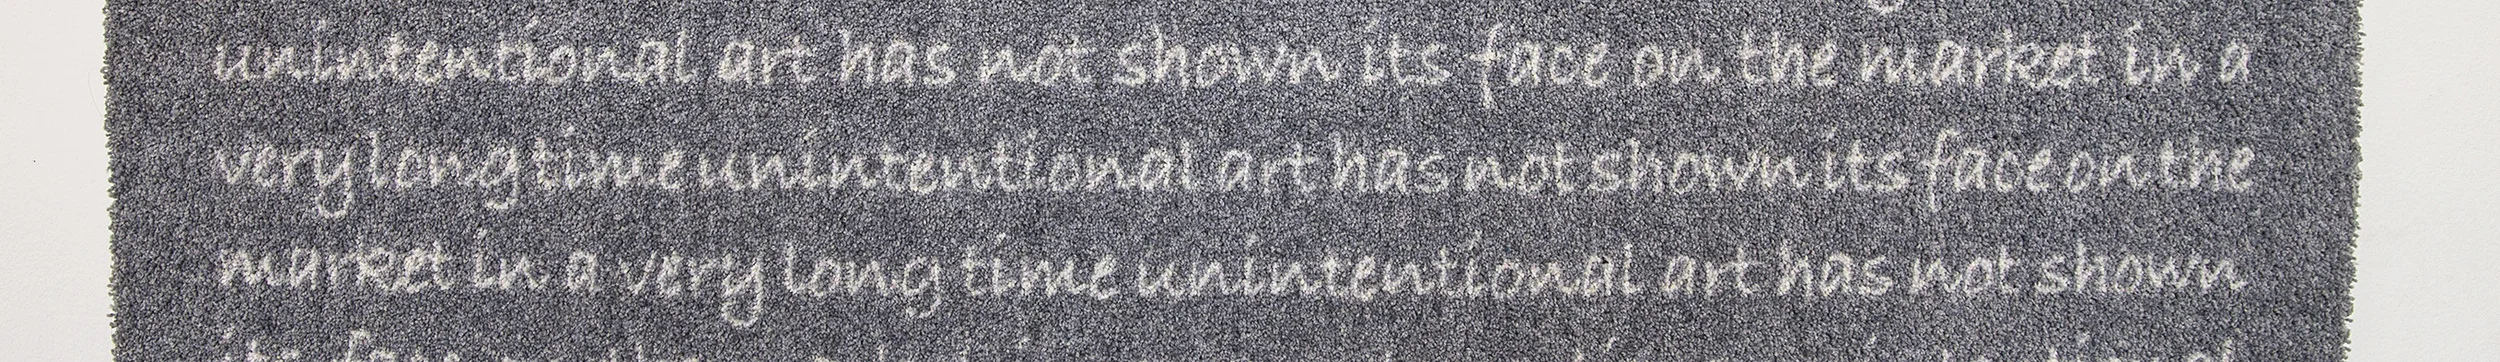 unintentional art has not shown its face on the market in a
very long time unintentional art has not shown its face on the
market in a very long time unintentional art has not shown